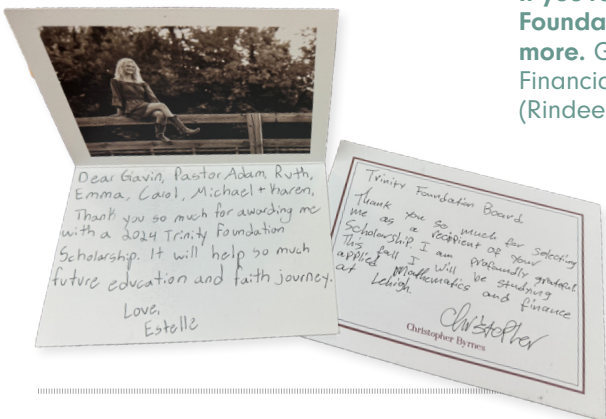 Founda
more. G
Financia
(Rindee
Dear Gavin, Pastor Adam, Ruth,
Emma, Carol, Michael + Karen,
Thank you so much for awarding me
with a 2024 Trinity Foundation
Scholarship. It will help so much
future education and faith journey.
Love,
Estelle
Trinity Foundation Board
Thank you so much for selecting
me as a recipient of your
Scholarship. I am profoundly grateful.
This fall I will be studying
applied Mathematics and finance
at Lehigh
Christopher
Christopher Byrnes